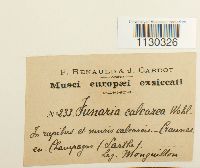 1130326
F. RENAULD & J. CARDOT
Musci europæi exsiccati
N° 233. Funaria calcarea Wahl.
In rupibus et muris calcareis. Craunas
en Champagne (Sarthe)
Leg. Monguillon